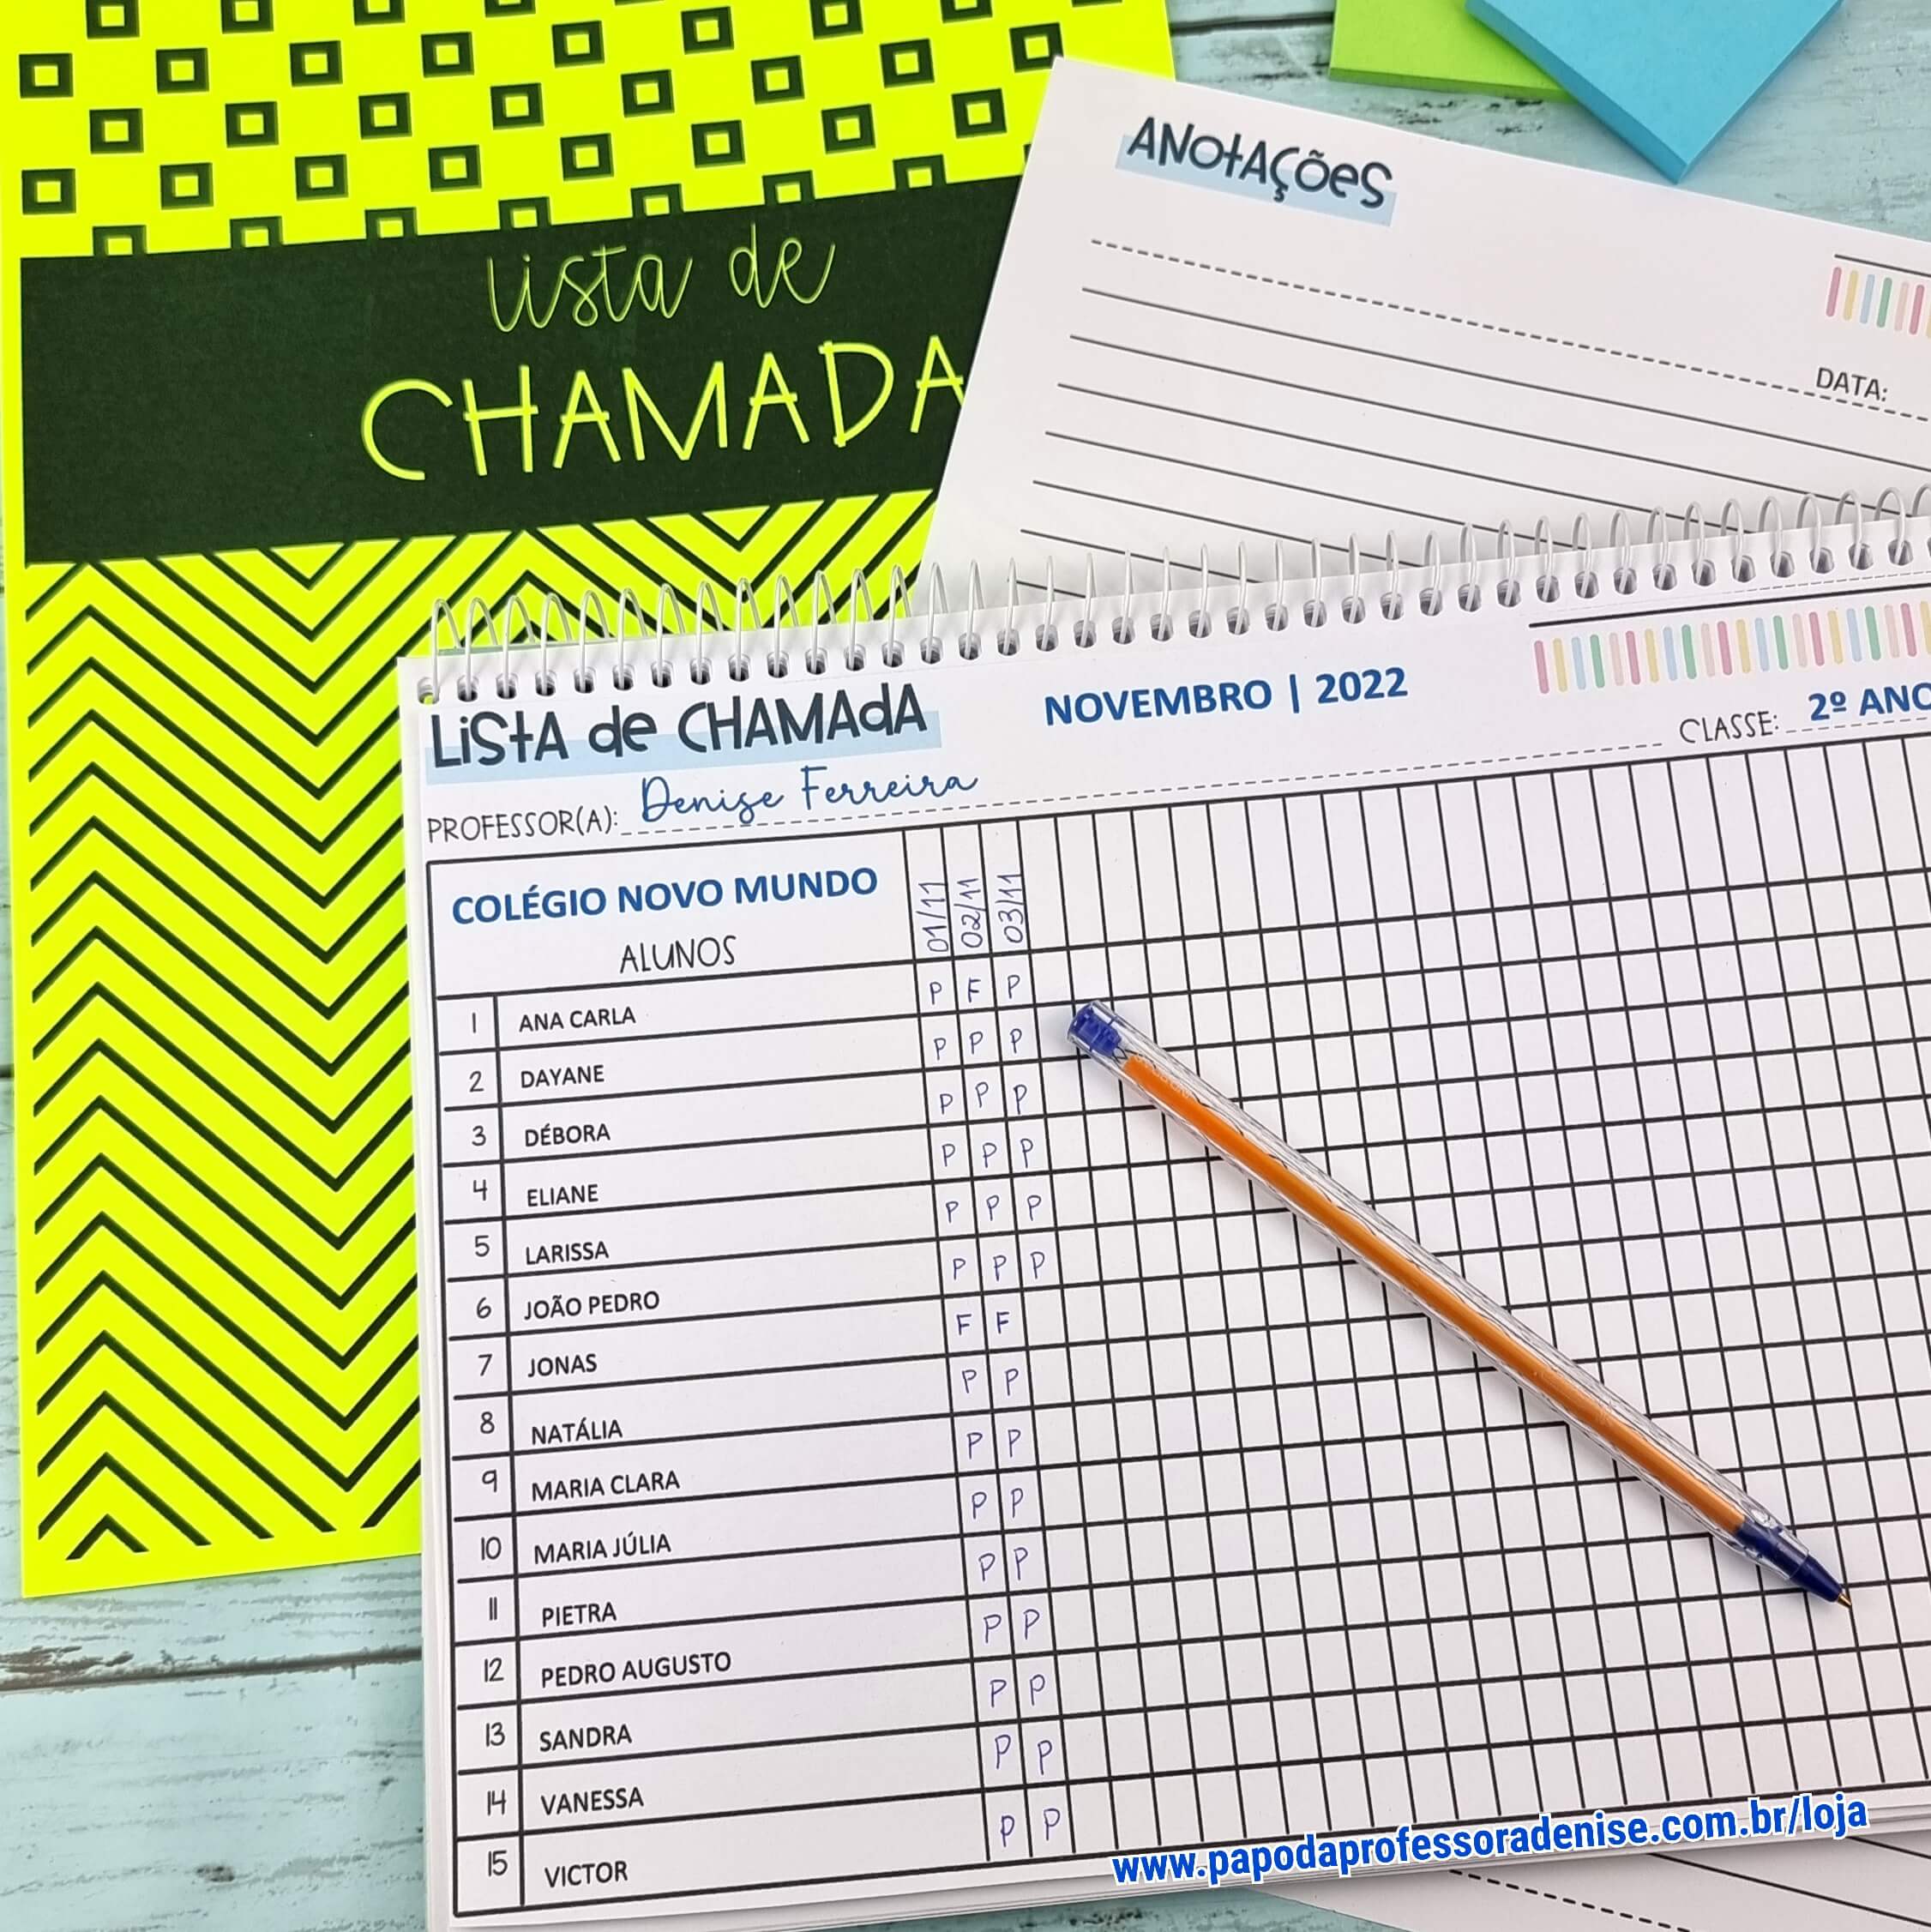 lista de
CHAMADA
ANotAÇões
DATA:
LiStA de CHAMAdA
NOVEMBRO | 2022
PROFESSOR(A): Denise Ferreira
CLASSE: 2º ANO
COLÉGIO NOVO MUNDO
ALUNOS
01/11 02/11 03/11
1 ANA CARLA P F P
2 DAYANE P P P
3 DÉBORA P P P
4 ELIANE P P P
5 LARISSA P P P
6 JOÃO PEDRO P P P
7 JONAS F F
8 NATÁLIA P P
9 MARIA CLARA P P
10 MARIA JÚLIA P P
11 PIETRA P P
12 PEDRO AUGUSTO P P
13 SANDRA P P
14 VANESSA P P
15 VICTOR P P
www.papodaprofessoradenise.com.br/loja